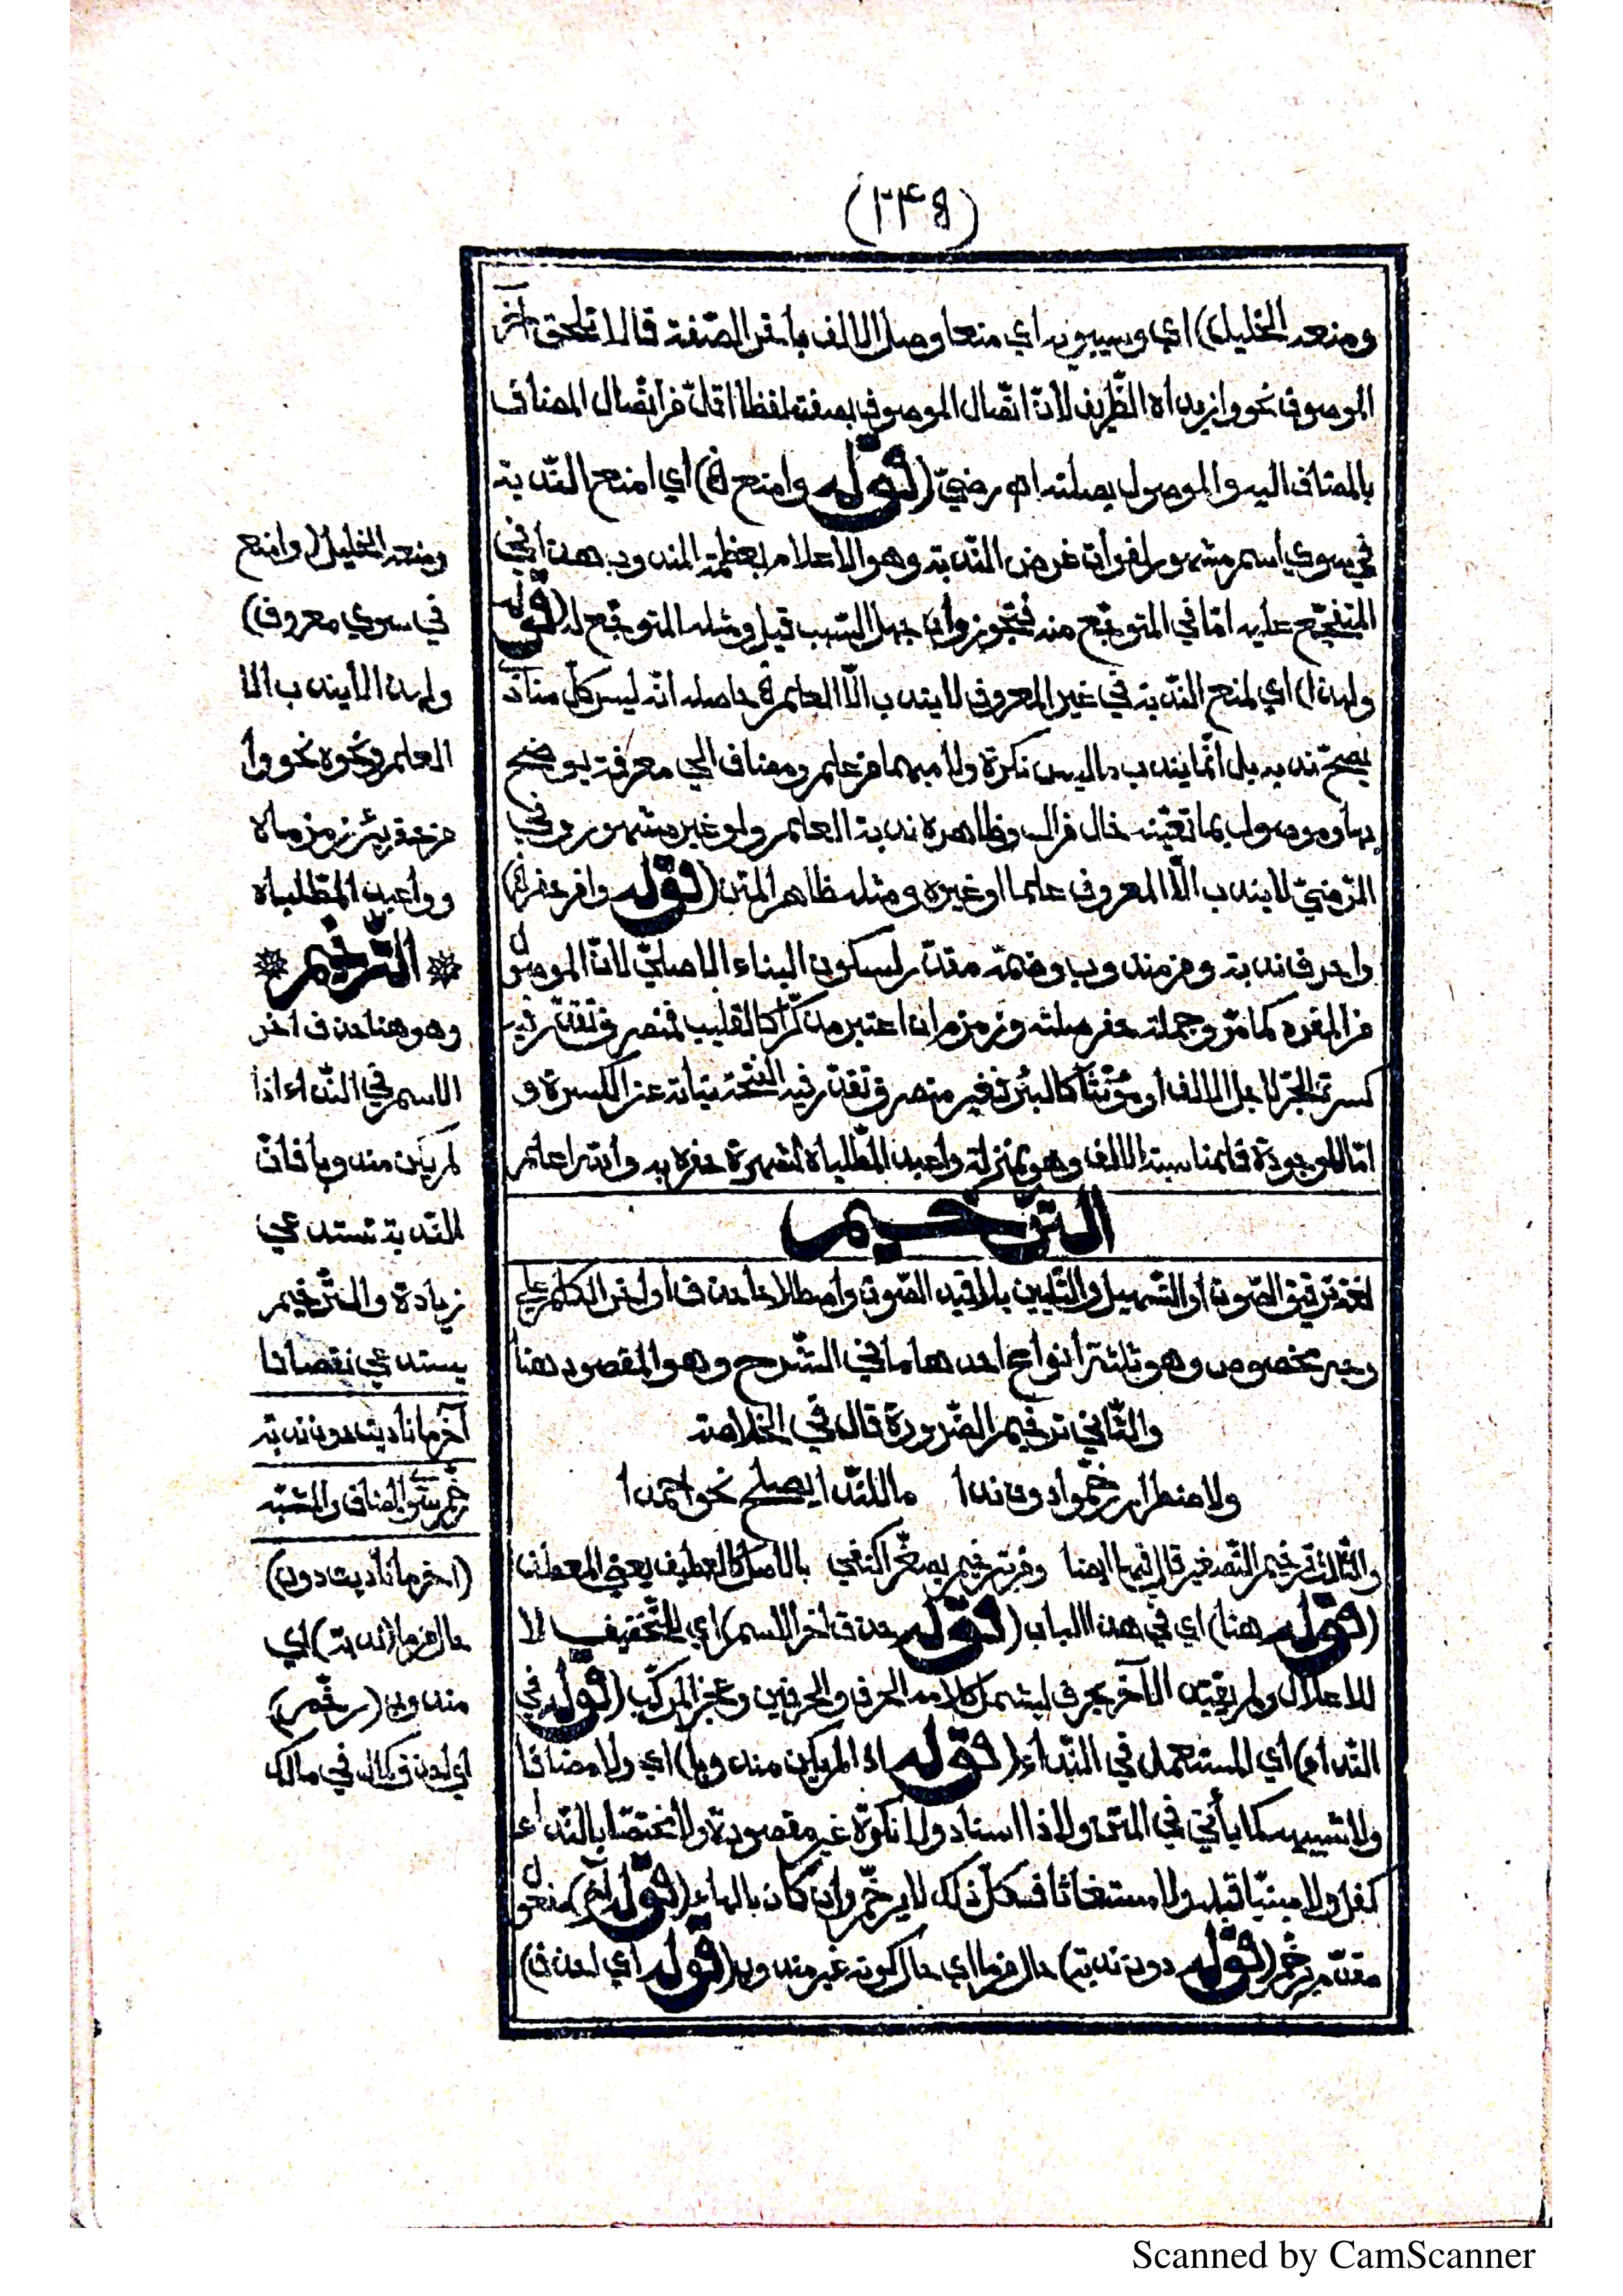 (٢٣٤)
ومنعه الخليل) اي وسيبويه اي منعا وصل الالف بآخر الصّفة قالا تلحق آخر
الموصوف نحو وازيداه الظّريف لأنّ اتّصال الموصوف بصفته لفظا اقلّ من اتّصال المضاف
بالمضاف اليه والموصول بصلته اه رضيّ (قوله وامنع الخ) أي امنع النّدبة
في سوي اسم مشهور لفوات غرض النّدبة وهو الاعلام بعظمة المندوب هذا في
المتفجّع عليه امّا في المتوجّع منه فتجوز وان جهل السّبب قيل ومثله المتوجّع له (قوله
ولهذا) اي لمنع النّدبة في غير المعروف لا يندب الّا العلم الخ حاصله انّه ليس كلّ مناد
يصحّ ندبه بل انّما يندب ما ليس نكرة ولا مبهما من علم ومضاف الي معرفة يوضح
بها وموصول بما تعيّنه خال من ال وظاهره ندبة العلم ولو غير مشهور وفي
الرّضيّ لا يندب الّا المعروف علما او غيره ومثله ظاهر المتن (قوله وا من حفر الخ)
وا حرف ندبة ومن مندوب وضمّه مقدّر لسكون البناء الاصليّ لانّ الموصول
من المفرد كما مرّ وجملة حفر صلته وزمزم ان اعتبر مذكّرا كالقليب فمنصرف تقدّر فيه
كسرة الجرّ لاجل الالف أو مؤنّثا كالبئر فغير منصرف تقدّر فيه الفتحة نيابة عن الكسرة و
امّا الموجودة فلمناسبة الالف وهو بمنزلة وا عبد المطّلباه لشهرة حفره به والله اعلم
التّرخيم
لغة ترقيق الصّوت أو التّسهيل والتّليين بلا قيد الصّوت واصطلاحا حذف أواخر الكلم علي
وجه مخصوص وهو ثلثة أنواع احدها ما في الشّرح وهو المقصود هنا
والثّاني ترخيم الضّرورة قال في الخلاصة
ولاضطرار رخّموا دون ندا ما للنّدا يصلح نحو احمدا
والثّالث ترخيم التّصغير قال فيها ايضا ومن بترخيم يصغّر اكتفي بالاصل كالعطيف يعني المعطفا
(قوله هنا) اي في هذا الباب (قوله حذف آخر الاسم) اي للتّخفيف لا
للاعلال ولم يقيّد الآخر بحرف ليشمل كلامه الحرف والحرفين وعجز المركّب (قوله في
النّداء) أي المستعمل في النّداء (قوله اذا لم يكن مندوبا) اي ولا مضافا
ولا شبيهه كما يأتي في المتن ولا ذا اسناد ولا نكرة غير مقصودة ولا مختصّا بالنّداء
كفل ولا مبنيّا قبله ولا مستغاثا فكلّ ذلك لا يرخّم وان كان بالهاء (قوله آخر) مفعول
مقدّم لرخّم (قوله دون ندبة) حال من ما اي حال كونه غير مندوب (قوله أي احذف)
ومنعه الخليل (وامنع
في سوي معروف)
ولهذا لا يندب الا
العلم ونحوه نحو وا
من حفر بئر زمزماه
ووا عبد المطّلباه
التّرخيم
وهو هنا حذف آخر
الاسم في النّداء اذا
لم يكن مندوبا فانّ
النّدبة تستدعي
زيادة والتّرخيم
يستدعي نقصانا
آخر ما ناديت دون ندبة
رخّم سوي المضاف والمشبّه
(آخر ما ناديت دون)
حال من ما (ندبة) اي
مندوب (رخّم)
أي احذف كمال في مالك
Scanned by CamScanner